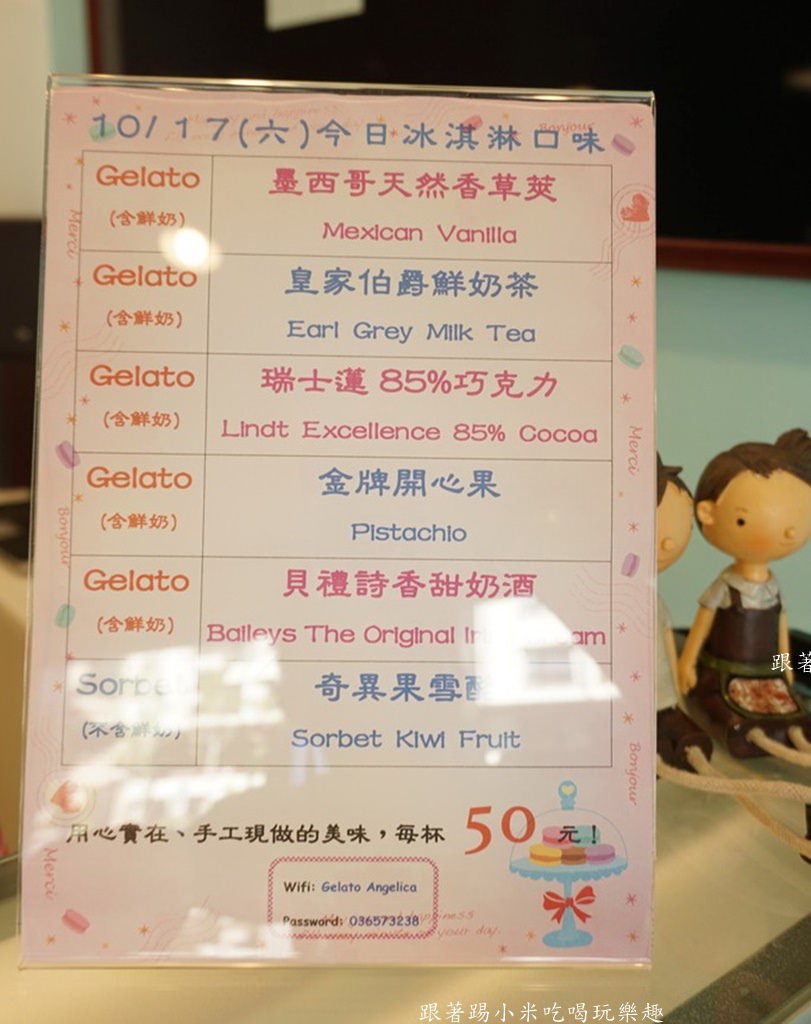 10/17(六)今日冰淇淋口味
Bonjour
Gelato
(含鮮奶)
墨西哥天然香草莢
Mexican Vanilla
Merci
Gelato
(含鮮奶)
皇家伯爵鮮奶茶
Earl Grey Milk Tea
Gelato
(含鮮奶)
瑞士蓮 85%巧克力
Lindt Excellence 85% Cocoa
Merci
Gelato
(含鮮奶)
金牌開心果
Pistachio
Bonjour
Gelato
(含鮮奶)
貝禮詩香甜奶酒
Baileys The Original
Sorbet
(不含鮮奶)
奇異果雪酪
Sorbet Kiwi Fruit
Bonjour
用心實在、手工現做的美味，每杯 50 元！
Merci
Wifi: Gelato Angelica
Password: 036573238
your day
跟著
跟著踢小米吃喝玩樂趣